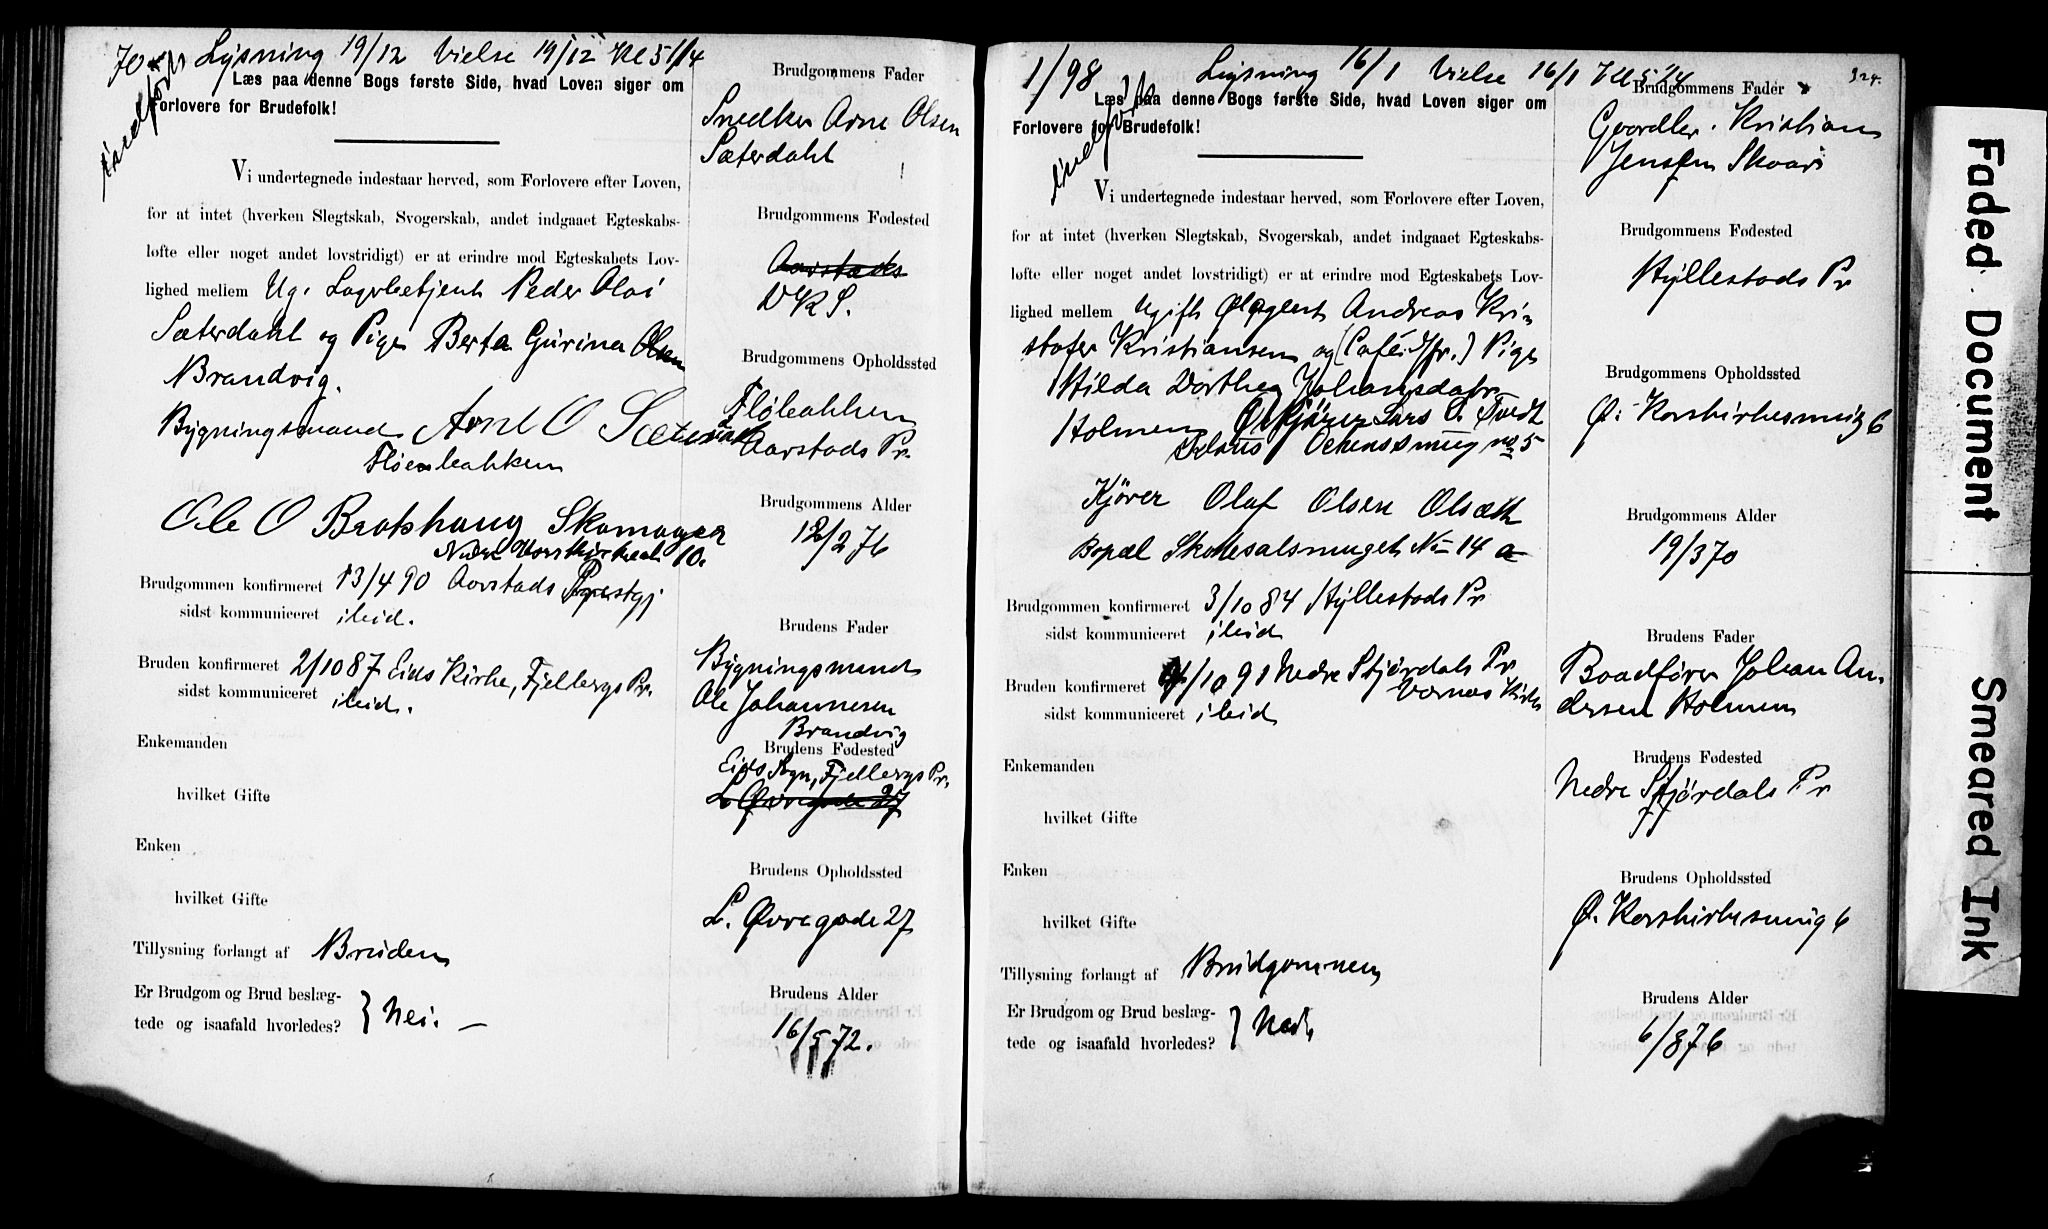 70 Lysning 19/12 Vielse 19/12 Kl 5 1/4
indført
Læs paa denne Bogs første Side, hvad Loven siger om
Forlovere for Brudefolk!
Vi undertegnede indestaar herved, som Forlovere efter Loven,
for at intet (hverken Slegtskab, Svogerskab, andet indgaaet Egteskabs-
løfte eller noget andet lovstridigt) er at erindre mod Egteskabets Lov-
lighed mellem Ug. Lagerbetjent Peder Olai
Sæterdahl og Pige Berta Gurina Olsen
Brandvig.
Bygningsmand Arne O Sæterdahl
Fløenbakken
Ole O Brotshaug Skomager
Nedre Korskirkealm 10.
Brudgommen konfirmeret 13/4 90 Aarstads Prestgj
sidst kommuniceret ibid.
Bruden konfirmeret 2/10 87 Eids Kirke, Fjelbergs Pr.
sidst kommuniceret ibid.
Enkemanden
hvilket Gifte
Enken
hvilket Gifte
Tillysning forlangt af Bruden
Er Brudgom og Brud beslæg-
tede og isaafald hvorledes? } Nei. —
Brudgommens Fader
Snedker Arne Olsen
Sæterdahl
Brudgommens Fødested
Aarstads
DKS.
Brudgommens Opholdssted
Fløbakken
Aarstads Pr.
Brudgommens Alder
12/2 76
Brudens Fader
Bygningsmand
Ole Johannesen
Brandvig
Brudens Fødested
Eids Sogn, Fjelbergs Pr.
L. Øvregade 27
Brudens Opholdssted
L. Øvregade 27
Brudens Alder
16/5 72.
1/98 Lysning 16/1 Vielse 16/1 Kl 5 1/4
324.
indført
Læs paa denne Bogs første Side, hvad Loven siger om
Forlovere for Brudefolk!
Vi undertegnede indestaar herved, som Forlovere efter Loven,
for at intet (hverken Slegtskab, Svogerskab, andet indgaaet Egteskabs-
løfte eller noget andet lovstridigt) er at erindre mod Egteskabets Lov-
lighed mellem Ugift Ølagent Andreas Kri-
stofer Kristiansen og (Caféjfr.) Pige
Hilda Dorthea Johansdatr
Holmen Ølkjører Lars O. Tvedt
No 5
Kjører Olaf Olsen Olsæth
Bopæl Skotesalsmuget No 14 a
Brudgommen konfirmeret 3/10 84 Hyllestads Pr
sidst kommuniceret ibid
Bruden konfirmeret 4/10 91 Nedre Stjørdals Pr
Værnes Kirke
sidst kommuniceret ibid
Enkemanden
hvilket Gifte
Enken
hvilket Gifte
Tillysning forlangt af Brudgommen
Er Brudgom og Brud beslæg-
tede og isaafald hvorledes? }
Brudgommens Fader
Gaardbr. Kristian
Jensen Skaar
Brudgommens Fødested
Hyllestads Pr
Brudgommens Opholdssted
Ø. Korskirkesmug 6
Brudgommens Alder
19/3 70
Brudens Fader
Baadfører Johan An-
dersen Holmen
Brudens Fødested
Nedre Stjørdals Pr
Brudens Opholdssted
Ø. Korskirkesmug 6
Brudens Alder
6/8 76
Faded Document
Smeared Ink